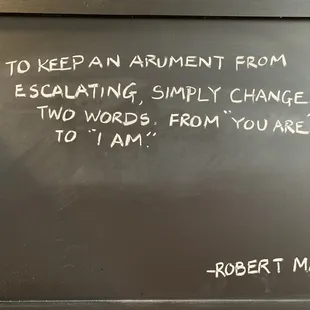 TO KEEP AN ARUMENT FROM
ESCALATING, SIMPLY CHANGE
TWO WORDS. FROM "YOU ARE"
TO "I AM."
-ROBERT M.